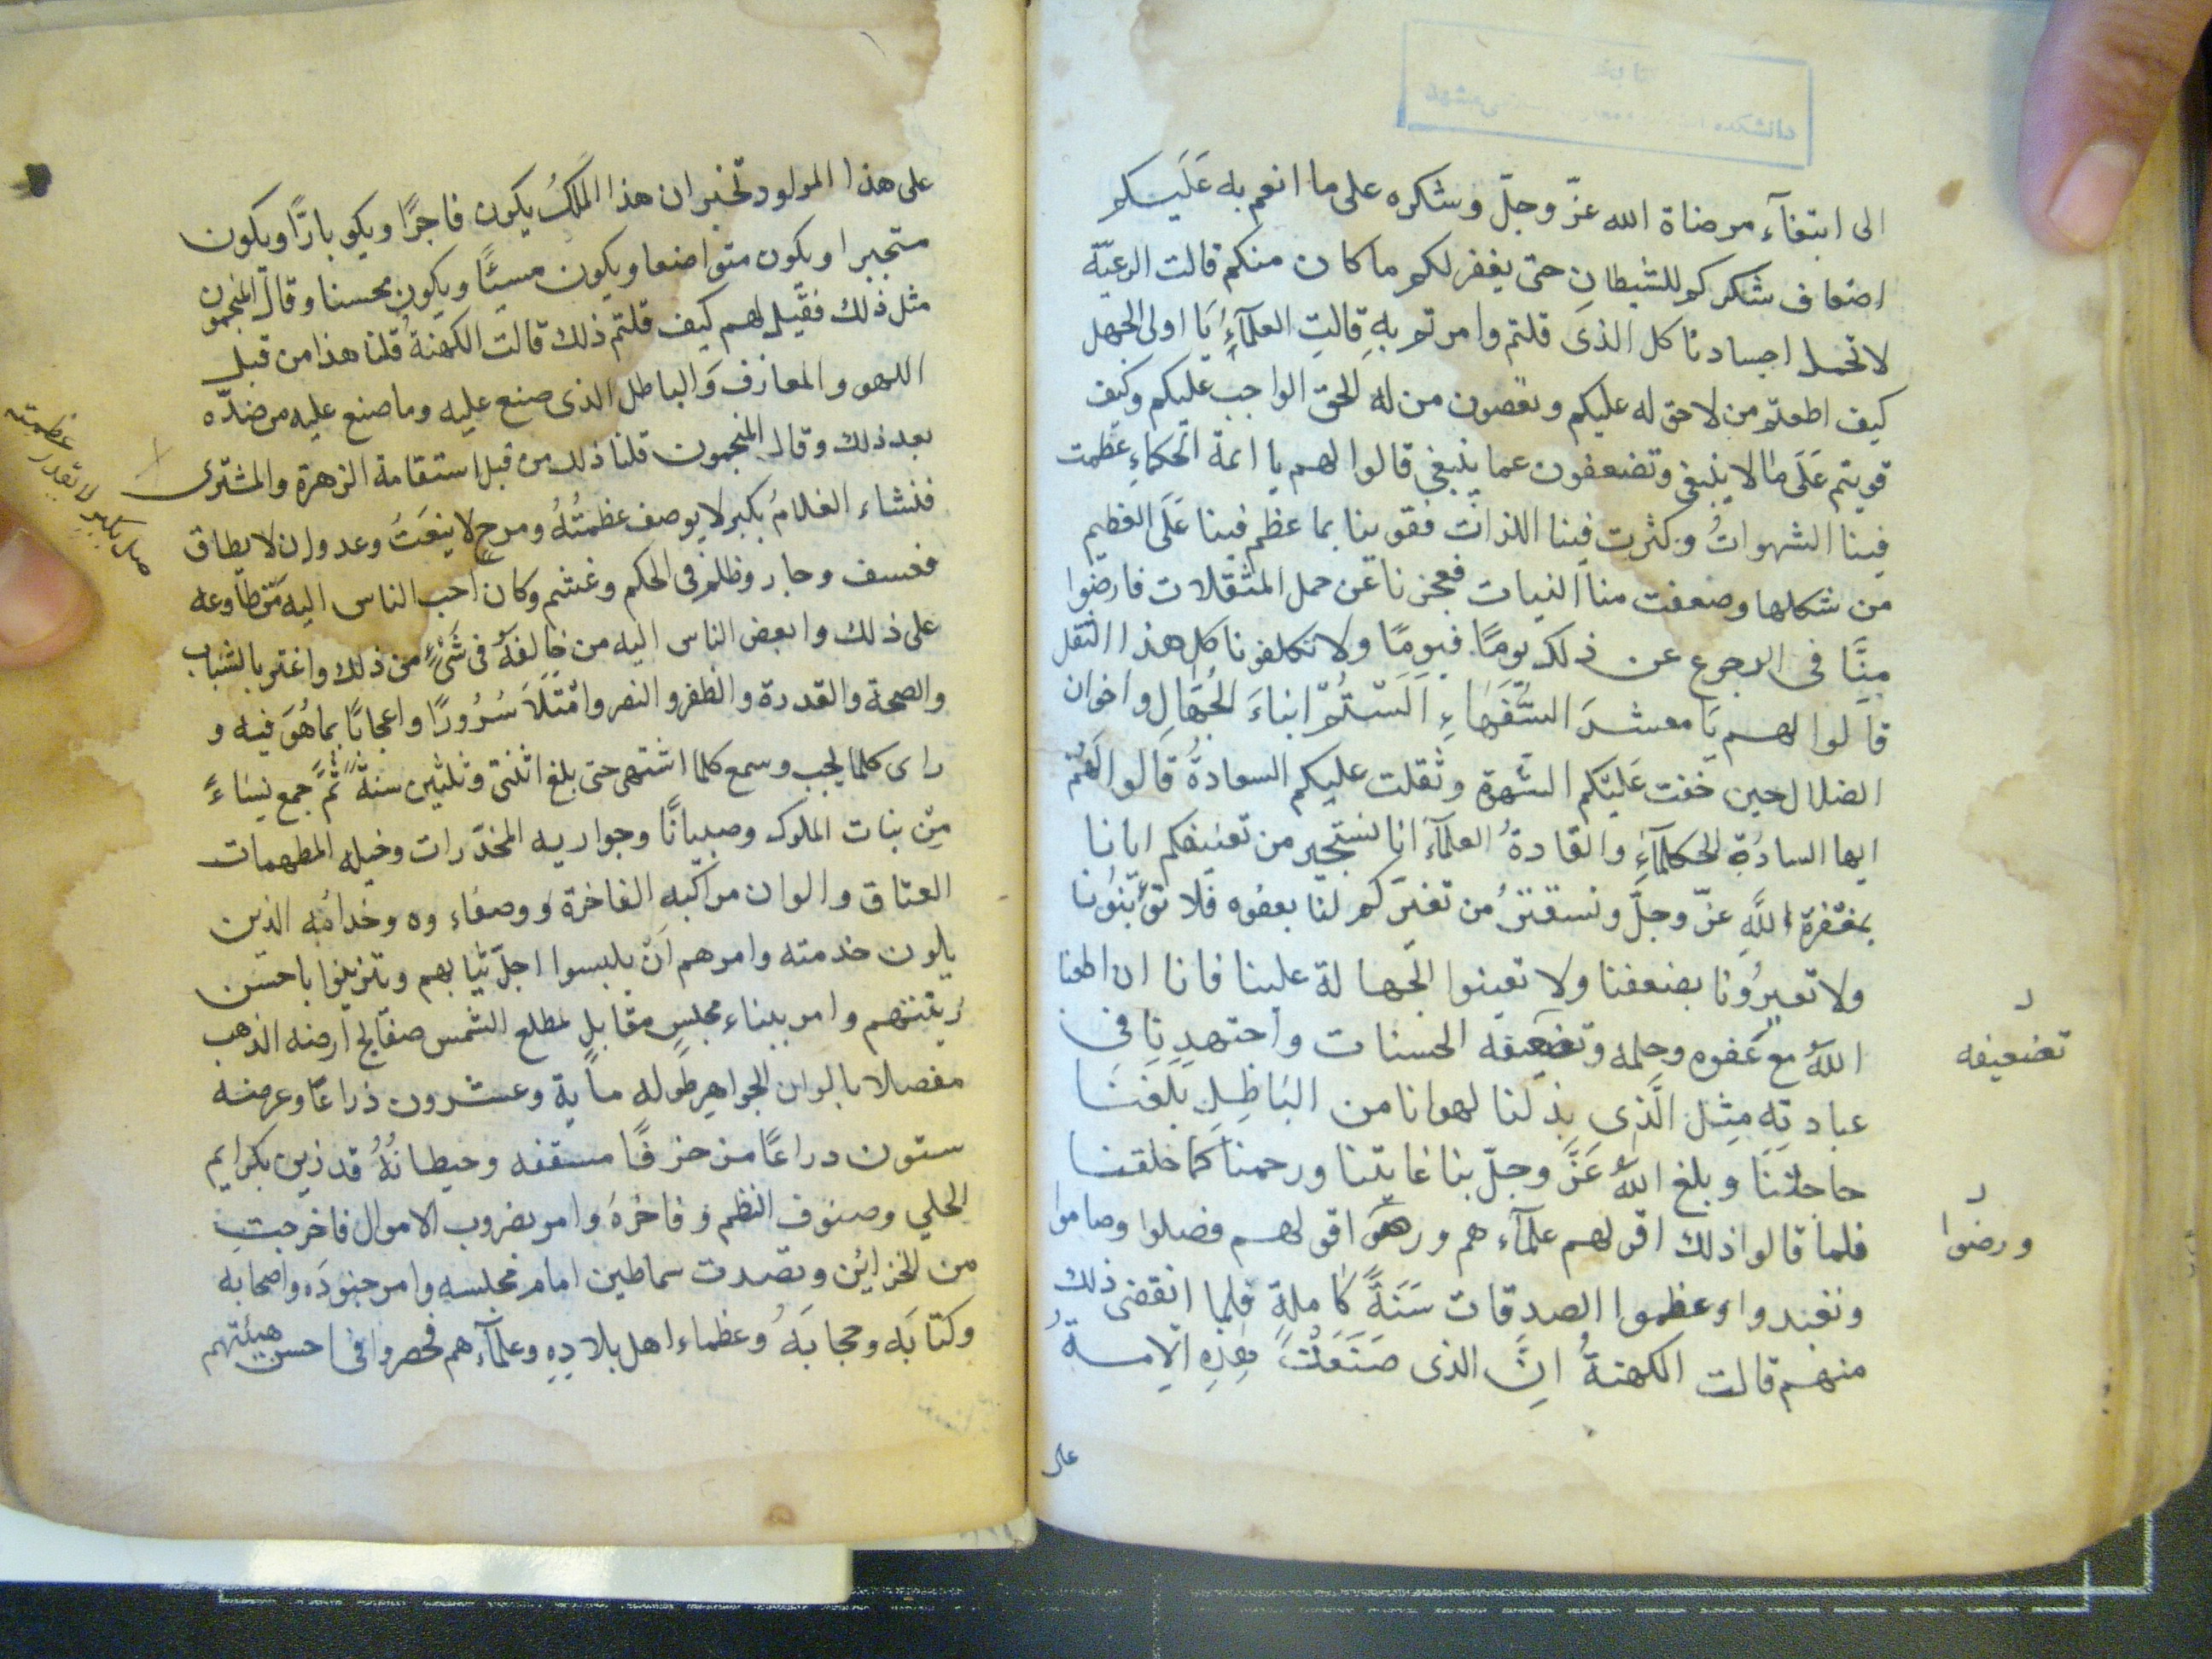 الى ابتغآء مرضاة الله عزّ وجلّ وشكره على ما انعم به عَلَيكم
اضعاف شكركم للشيطان حتى يغفر لكم ما كان منكم قالت الرعيّة
لا تحمل اجسادنا كل الذى قلتم وامرتم به قالتِ العلمآءُ يَا اولى الجهل
كيف اطعتم من لا حق له عليكم وتعصون من له الحق الواجب عليكم وكيف
قويتم عَلَى ما لا ينبغى وتضعفون عما ينبغي قالوا لهم يا ائمة الحكماءِ عظمت
فينا الشهواتُ وكثرت فينا اللذات فقوينا بما عظم فينا عَلَى العظيم
من شكلها وضعفت منا النيات فعجزنا عن حمل المثقلات فارضوا
منَّا فى الرجوع عن ذلك يومًا فيومًا ولا تكلفونا كل هذا الثقل
قالوا لهم يَا معشرَ السُّفَهاءِ اَلَسْتُمْ ابناءَ الجُهّالِ واخوان
الضلال حين خفت عَليْكم الشهرة وثقلت عليكم السعادةُ قالوا لَهُمْ
ايها السادُةِ الحكمآءِ والقادةُ العلمآءَ انا نستجير من تعنيفكم ايانا
بمغفرة اللّهِ عزّ وجلَّ ونستترُ من تغيّركم لنا بعفوه فلا تؤنّبُونا
ولا تعيرُونا بضعفنا ولا تعينوا الجهالة علينا فانا ان اطعنا
اللهَ مع عَفوه وحلمه وتضعيفه الحسنات واجتهدنا فى
عبادتِه مِثل الَّذِى بذلنا لهوانا من البَاطِلِ بَلَغْنَا
حاجتَنَا وبلغ اللهُ عَزَّ وجلّ بنا غايتنا ورحمنا كما خلقنا
فلما قالوا ذلك اقر لهم علمآءهم ورضوا قولهم فصلوا وصاموا
وتعبدوا وعظموا الصدقات سَنَةً كاملةً فلما انقضى ذلك
منهم قالت الكهنةُ اِنَّ الذى صَنَعَتْ هٰذِهِ الاِمةُ
تضعيفه
ورضوا
على
على هذا المولود تخبر ان هذا المَلكُ يكون فاجرًا ويكو بارًا ويكون
متجبرا ويكون متواضعا ويكون مسيئًا ويكون محسنا وقال المنجمون
مثل ذلك فقيل لهم كيف قلتم ذلك قالت الكهنة قلنا هذا من قبل
اللهو والمعازف وَالباطل الذى صنع عليه وما صنع عليه من ضدّه
بعد ذلك وقال المنجمون قلنا ذلك من قبل استقامة الزهرة والمشترى
فنشاء الغلامُ بكبر لا يوصف عظمتُهُ ومرحٍ لا ينعَتُ وعدوان لا يطاق
فعسف وجار وظلم فى الحكم وغشم وكان احب الناس اليه من طاوعه
على ذلك وابغض الناس اليه من خالفهُ فى شَىْءٍ من ذلك واغتر بالشباب
والصحة والقدرة والظفر والنصر وامْتَلَأَ سُرُورًا واعجابًا بما هُوَ فيه و
راى كلما يحب وسمع كلما اشتهى حتى بلغ اثنتى وثلثين سنة ثمّ جمع نِسَاءً
مِّن بنات الملوك وصبيانًا وجواريه المخدّرات وخيله المطهمات
العتاق والوان مراكبه الفاخرة ووصفاءوه وخدامُه الذين
يلون خدمته وامرهم اَنْ يلبسوا اجلّ ثيابهم وتزينوا باحسن
زينتهم وامر ببناء مجلسٍ مقابلٍ لمطلع الشمس صفايح ارضه الذهب
مفصلا بالوان الجواهر طوله مأية وعشرون ذراعًا وعرضه
ستون دراعًا مزخرفًا مسقفه وحيطانُهُ قد زين بكرايم
الحلي وصنوف النظم وفاخرهَ وامر بضروب الاموال فاخرجت
من الخزائن ونضدت سماطين امام مجلسه وامر جنودَه واصحابه
وكتابَه وحجابَهُ وعظماء اهل بلادِهِ وعلمآءهم فحضروا فى احسن هيئتهم
لا تقدر عظمته